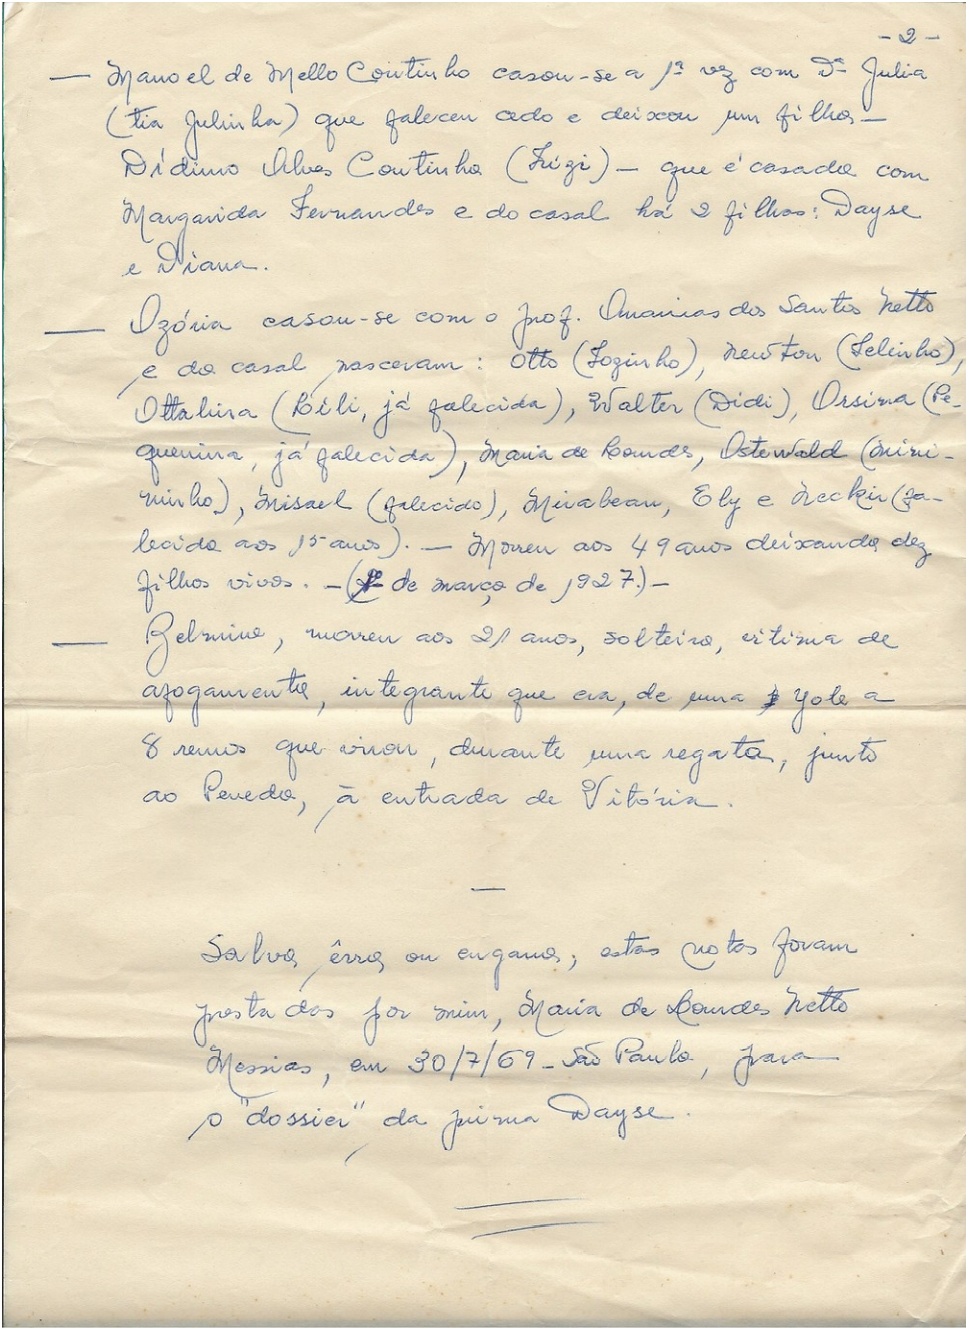 - 2 -
— Manoel de Mello Coutinho casou-se a 1ª vez com Dª Julia
(tia Julinha) que faleceu cedo e deixou um filho —
Dídimo Alves Coutinho (Zizi) — que é casado com
Margarida Fernandes e do casal há 2 filhas: Dayse
e Diana.
— Ozória casou-se com o prof. Ananias dos Santos Netto
e do casal nasceram: Otto (Zozinho), Newton (Lelinho),
Ottalina (Lili, já falecida), Walter (Didi), Orsina (Pe-
quenina, já falecida), Maria de Lourdes, Ostewald (Mini-
ninho), Misael (falecido), Mirabeau, Ely e Neckir (fa-
lecido aos 15 anos). — Morreu aos 49 anos deixando dez
filhos vivos. - (1º de março de 1927.) -
— Belmiro, morreu aos 21 anos, solteiro, vítima de
afogamento, integrante que era, de uma yole a
8 remos que virou, durante uma regata, junto
ao Penedo, à entrada de Vitória.
—
Salvo êrro ou engano, estas notas foram
prestadas por mim, Maria de Lourdes Netto
Messias, em 30/7/69 - São Paulo, para
o "dossier" da prima Dayse.